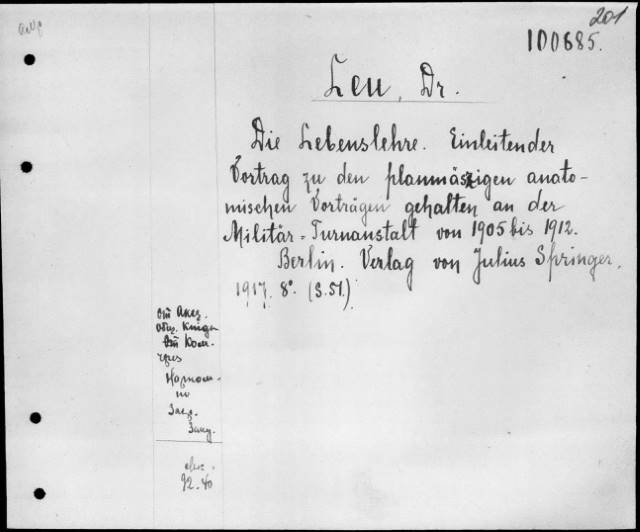 201
100685.
Leu, Dr.
Die Lebenslehre. Einleitender
Vortrag zu den planmäszigen anato-
mischen Vorträgen gehalten an der
Militär-Turnanstalt von 1905 bis 1912.
Berlin. Verlag von Julius Springer.
1917. 8°. (S. 51.)
92-40